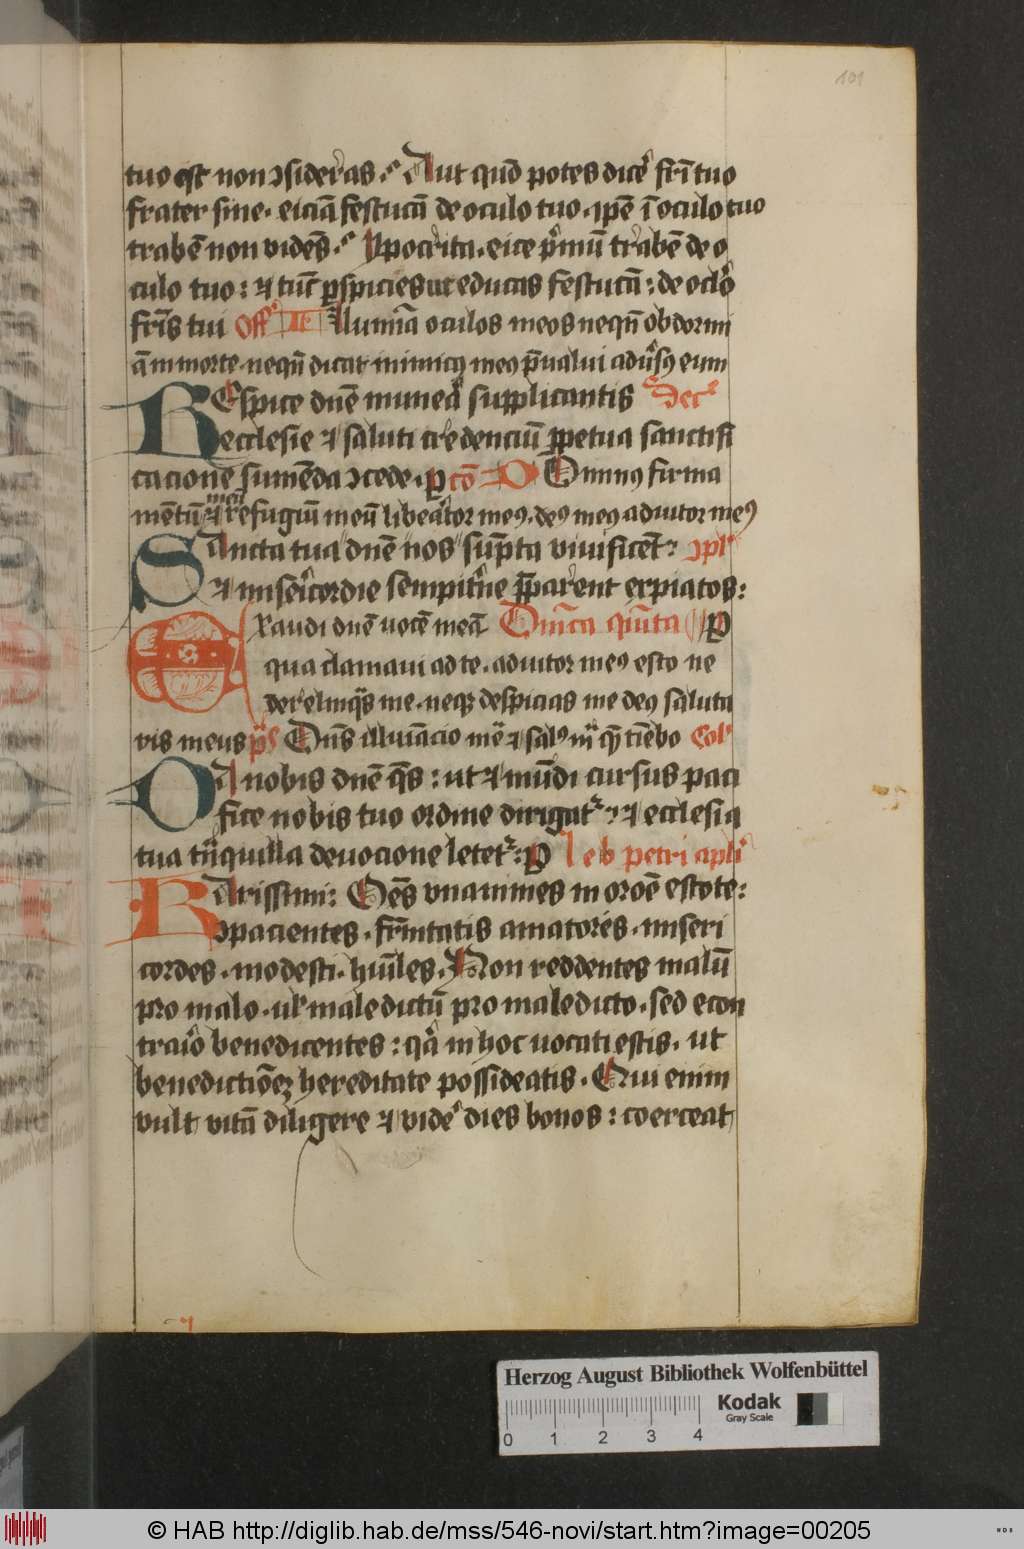 101
tuo est non ↄsideras. Aut quō potes dicere fr̄i tuo
frater sine. eiciā festucā de oculo tuo. ip̄e ī oculo tuo
trabē non vidēs. Ypocrita. eice p̄mū trabē de o
culo tuo: ⁊ tūc ꝑspicies ut educas festucā: de oclō
fr̄is tui Off̄ Illumīa oculos meos nequn̄ obdormi
ā in morte. nequn̄ dicat inimicꝰ meꝰ p̄ualui adūsꝰ eum
REspice dn̄e munera supplicantis Secr̄
ecclesie ⁊ saluti credenciū ꝑpetua sanctifi
cacione sumēda ↄcede. ꝑ cō Dominꝰ firma
mētū meū ⁊ refugiū meū liberator meꝰ. deꝰ meꝰ adiutor meꝰ
SAncta tua dn̄e nos sūpta viuificēt: ↄpl̄
⁊ misericordie sempitn̄e p̄parent expiatos:
EXaudi dn̄e uocē meā Dm̄ca quīta P
qua clamaui ad te. adiutor meꝰ esto ne
derelinqs̄ me. neqꝫ despicias me deꝰ saluta
ris meus p̄s Dn̄s illuīacio mē ⁊ salꝰ m̄ q̄ timēbo Col̄
DA nobis dn̄e qs̄: ut ⁊ mūdi cursus paci
fice nobis tuo ordine dirigat̄: ⁊ ecclesia
tua tn̄quilla deuocione letet̄: P l eb petri apl̄i
KArissimi: Oēs vnanimes in orōe estote:
ↄpacientes. fr̄nitatis amatores. miseri
cordes. modesti. hūiles. Non reddentes malū
pro malo. ul̄ maledictū pro maledicto. sed econ
traiō benedicentes: qā in hoc uocati estis. ut
benedictiōeꝫ hereditate possideatis. Qui enim
vult vitā diligere ⁊ videre dies bonos: coerceat
Herzog August Bibliothek Wolfenbüttel
Kodak
Gray Scale
0 1 2 3 4
© HAB http://diglib.hab.de/mss/546-novi/start.htm?image=00205